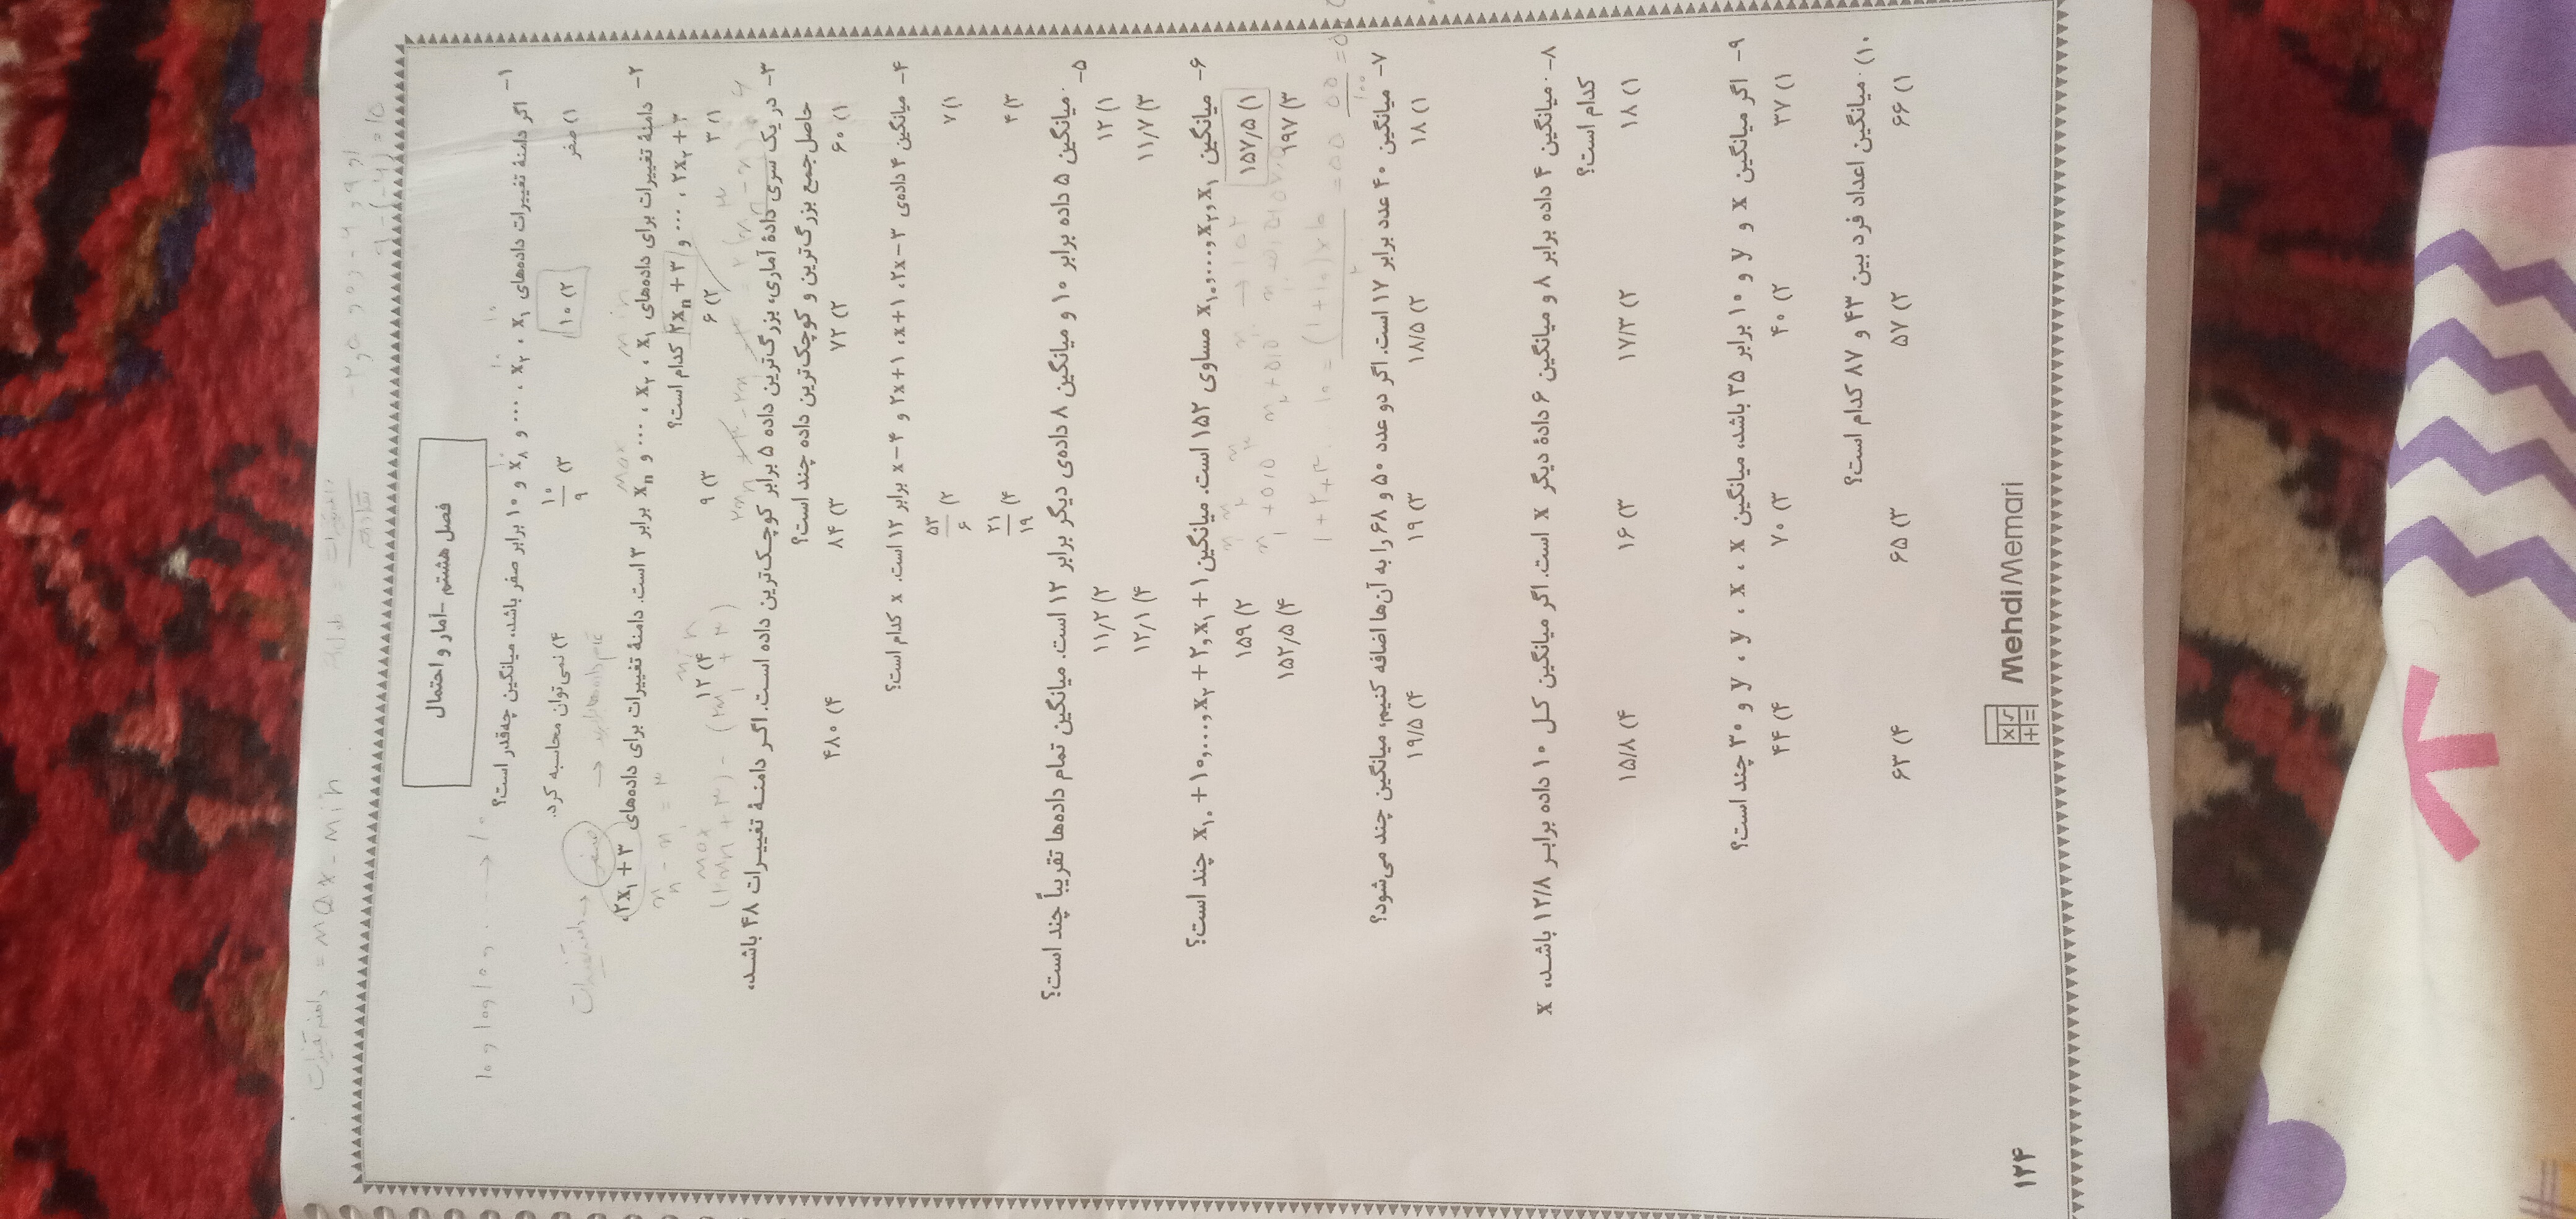 دامنه تغییرات = max - min
فصل هشتم -آمار و احتمال
۱- اگر دامنهٔ تغییرات داده‌های x۱ ، x۲ ، ... و x۸ و ۱۰ برابر صفر باشد، میانگین چه‌قدر است؟
۱) صفر ۲) ۱۰ ۳) ۱۰/۹ ۴) نمی‌توان محاسبه کرد.
۲- دامنهٔ تغییرات برای داده‌های x۱ ، x۲ ، ... و xn برابر ۳ است. دامنهٔ تغییرات برای داده‌های ۲x۱ + ۳،
۲x۲ + ۳ ، ... و ۲xn + ۳ کدام است؟
۱) ۳ ۲) ۶ ۳) ۹ ۴) ۱۲
۳- در یک سری دادهٔ آماری، بزرگ‌ترین داده ۵ برابر کوچک‌ترین داده است. اگر دامنهٔ تغییرات ۴۸ باشد،
حاصل‌جمع بزرگ‌ترین و کوچک‌ترین داده چند است؟
۱) ۶۰ ۲) ۷۲ ۳) ۸۴ ۴) ۴۸۰
۴- میانگین ۴ داده‌ی ۲x−۳، x+۱، ۲x+۱ و x−۴ برابر ۱۲ است. x کدام است؟
۱) ۷ ۲) ۵۳/۶
۳) ۴ ۴) ۲۱/۱۹
۵- میانگین ۵ داده برابر ۱۰ و میانگین ۸ داده‌ی دیگر برابر ۱۲ است. میانگین تمام داده‌ها تقریباً چند است؟
۱) ۱۲ ۲) ۱۱٫۲
۳) ۱۱٫۷ ۴) ۱۲٫۱
۶- میانگین x۱۰,...,x۲,x۱ مساوی ۱۵۲ است. میانگین x۱۰ + ۱۰,...,x۲ + ۲,x۱ + ۱ چند است؟
۱) ۱۵۷٫۵ ۲) ۱۵۹
۳) ۱۹۷ ۴) ۱۵۲٫۵
۷- میانگین ۴۰ عدد برابر ۱۷ است. اگر دو عدد ۵۰ و ۶۸ را به آن‌ها اضافه کنیم، میانگین چند می‌شود؟
۱) ۱۸ ۲) ۱۸/۵ ۳) ۱۹ ۴) ۱۹/۵
۸- میانگین ۴ داده برابر ۸ و میانگین ۶ دادهٔ دیگر x است. اگر میانگین کل ۱۰ داده برابر ۱۲/۸ باشد، x
کدام است؟
۱) ۱۸ ۲) ۱۷/۳ ۳) ۱۶ ۴) ۱۵/۸
۹- اگر میانگین x و y و ۱۰ برابر ۳۵ باشد، میانگین x ، x ، y ، y و ۳۰ چند است؟
۱) ۳۷ ۲) ۴۰ ۳) ۷۰ ۴) ۴۴
۱۰) میانگین اعداد فرد بین ۴۳ و ۸۷ کدام است؟
۱) ۶۶ ۲) ۵۷ ۳) ۶۵ ۴) ۶۳
MehdiMemari
۱۲۴